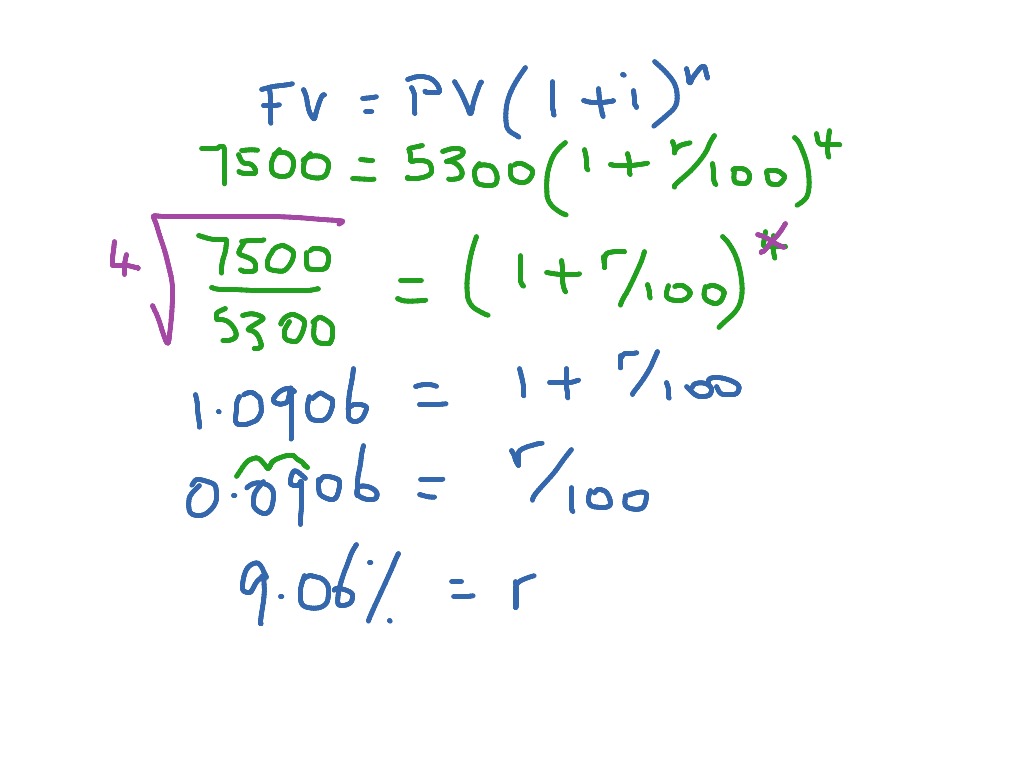 FV = PV(1+i)^n
7500 = 5300(1+r/100)^4
4√(7500/5300) = (1+r/100)^4
1.0906 = 1+r/100
0.0906 = r/100
9.06% = r